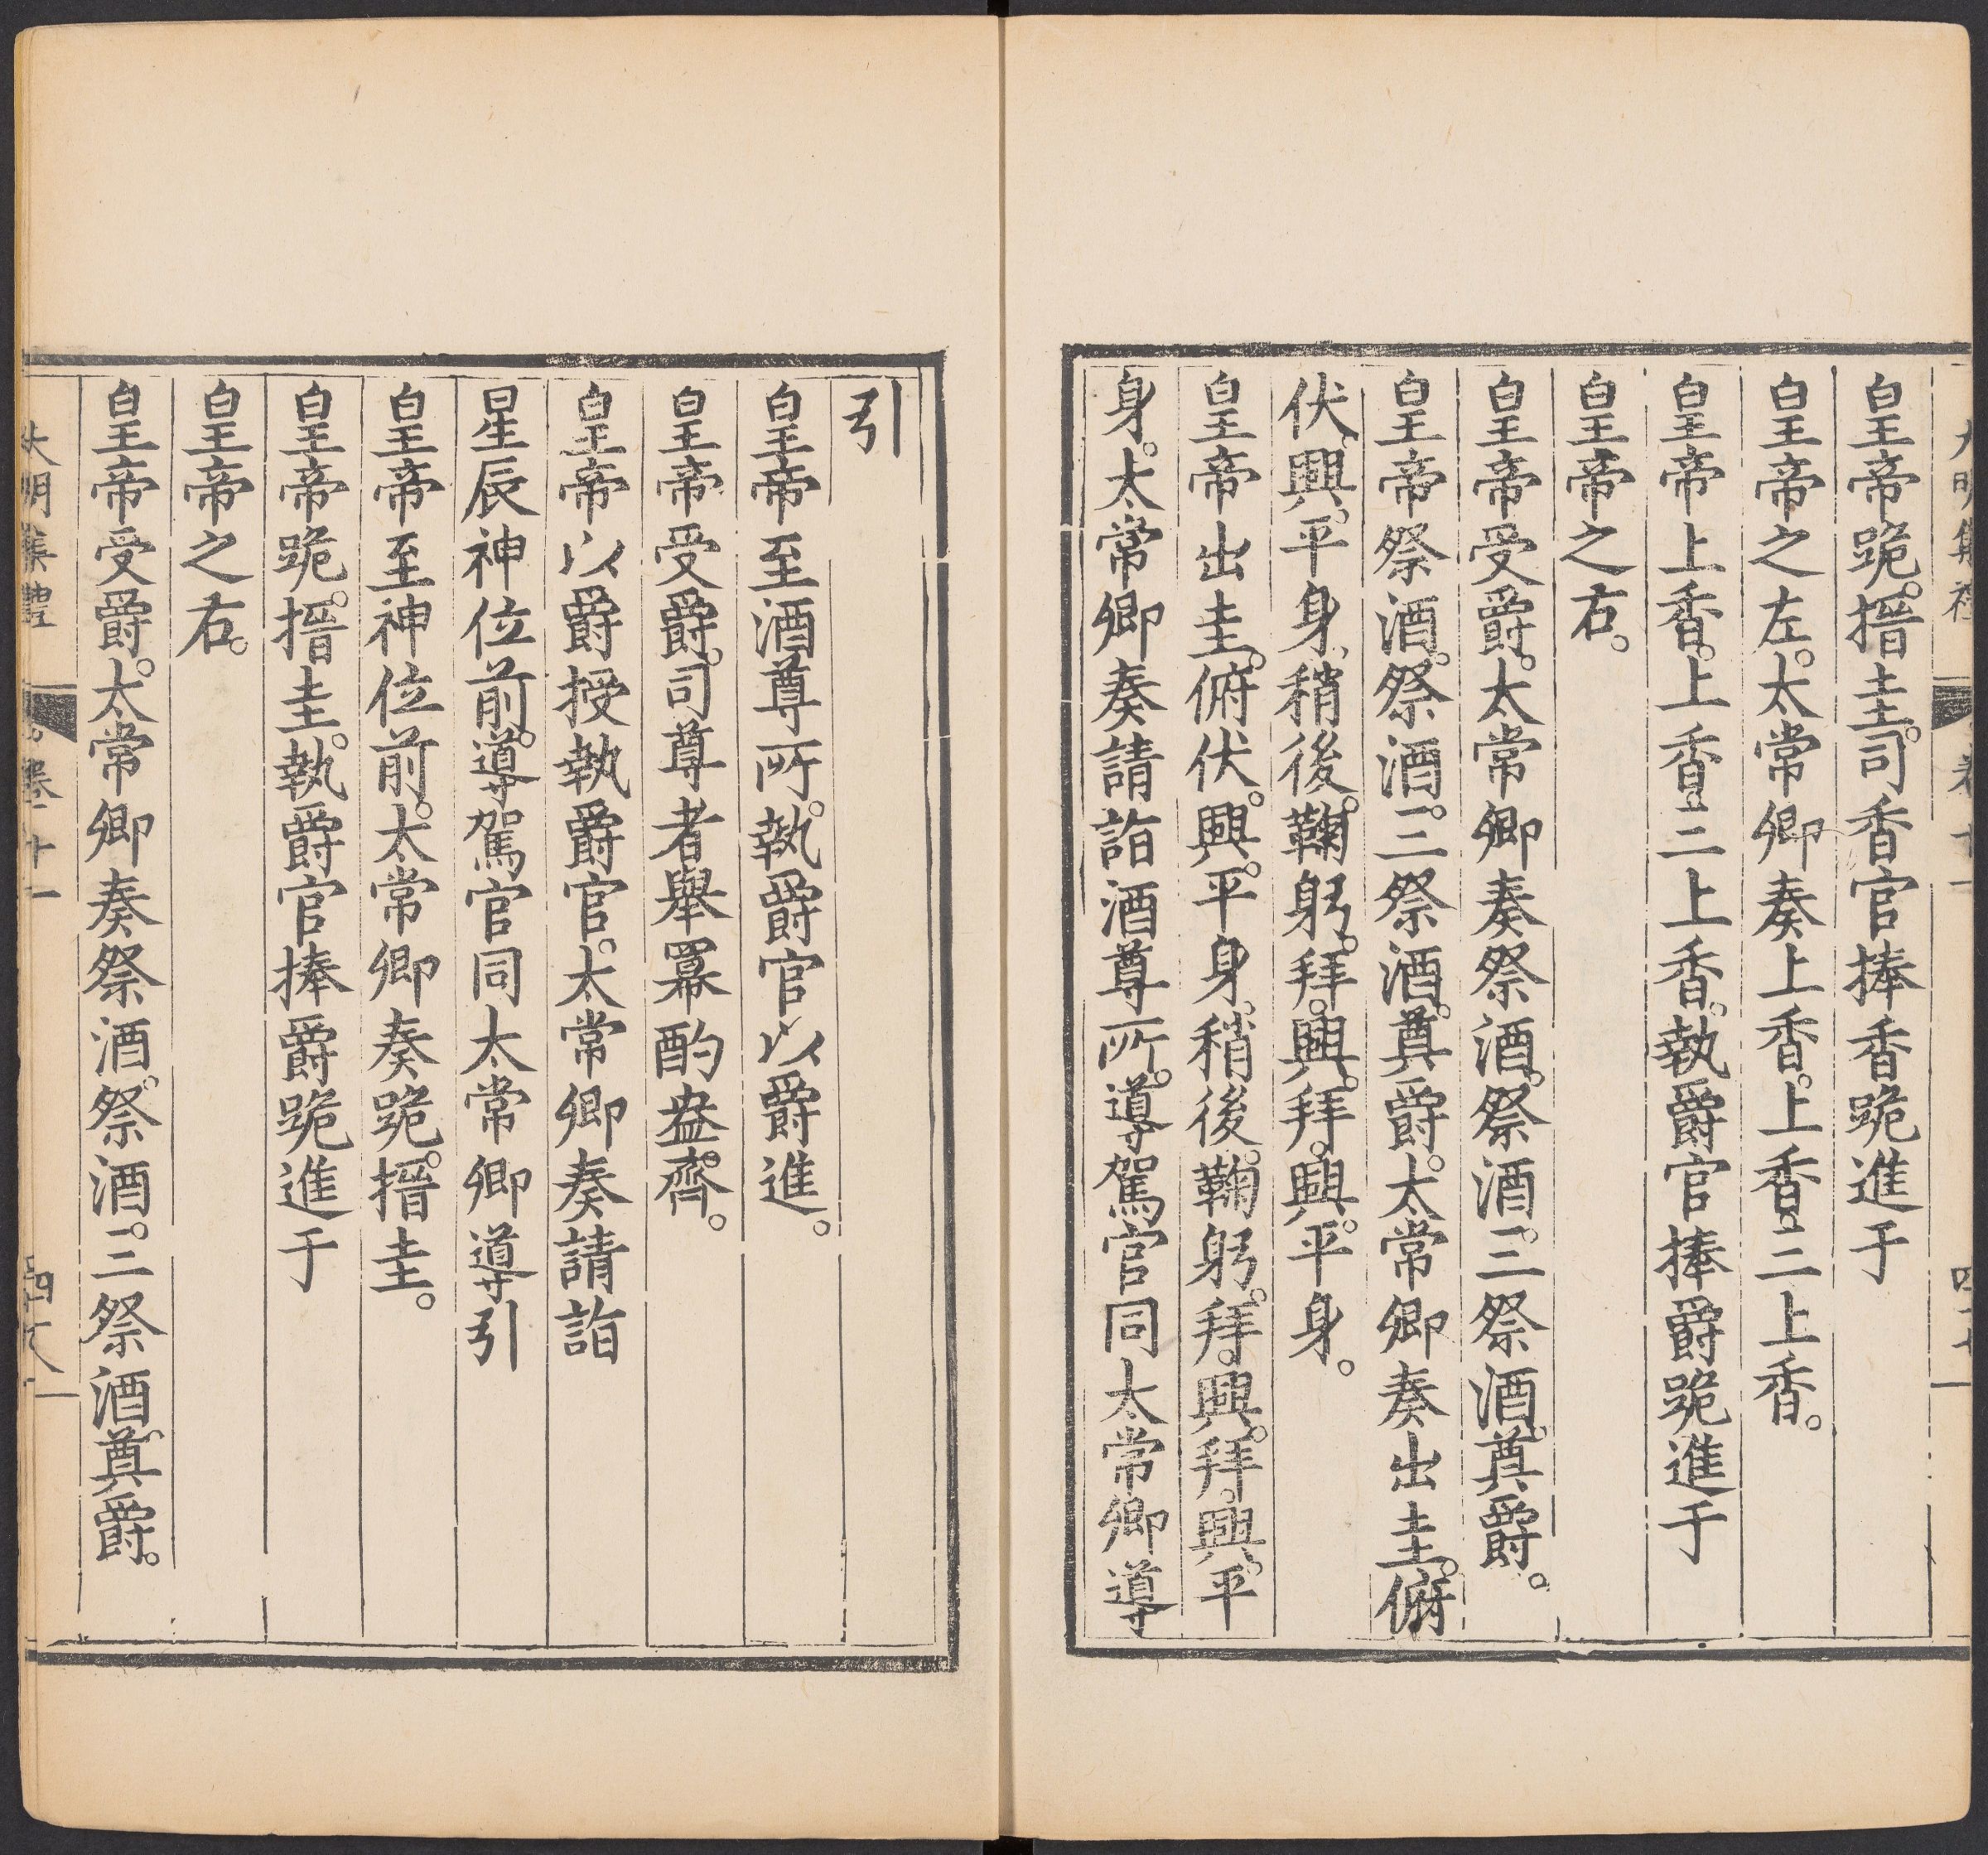 大明集禮 卷十一 四十七
皇帝跪。搢圭。司香官捧香跪進于
皇帝之左。太常卿奏上香。上香。三上香。
皇帝上香。上香。三上香。執爵官捧爵跪進于
皇帝之右。
皇帝受爵。太常卿奏祭酒。祭酒。三祭酒。奠爵。
皇帝祭酒。祭酒。三祭酒。奠爵。太常卿奏出圭。俯
伏。興。平身。稍後。鞠躬。拜。興。拜。興。平身。
皇帝出圭。俯伏。興。平身。稍後。鞠躬。拜。興。拜。興。平
身。太常卿奏請詣酒尊所。導駕官同太常卿導
引
皇帝至酒尊所。執爵官以爵進。
皇帝受爵。司尊者舉羃酌盎齊。
皇帝以爵授執爵官。太常卿奏請詣
星辰神位前。導駕官同太常卿導引
皇帝至神位前。太常卿奏跪。搢圭。
皇帝跪。搢圭。執爵官捧爵跪進于
皇帝之右。
皇帝受爵。太常卿奏祭酒。祭酒。三祭酒。奠爵。
大明集禮 卷十一 四十八